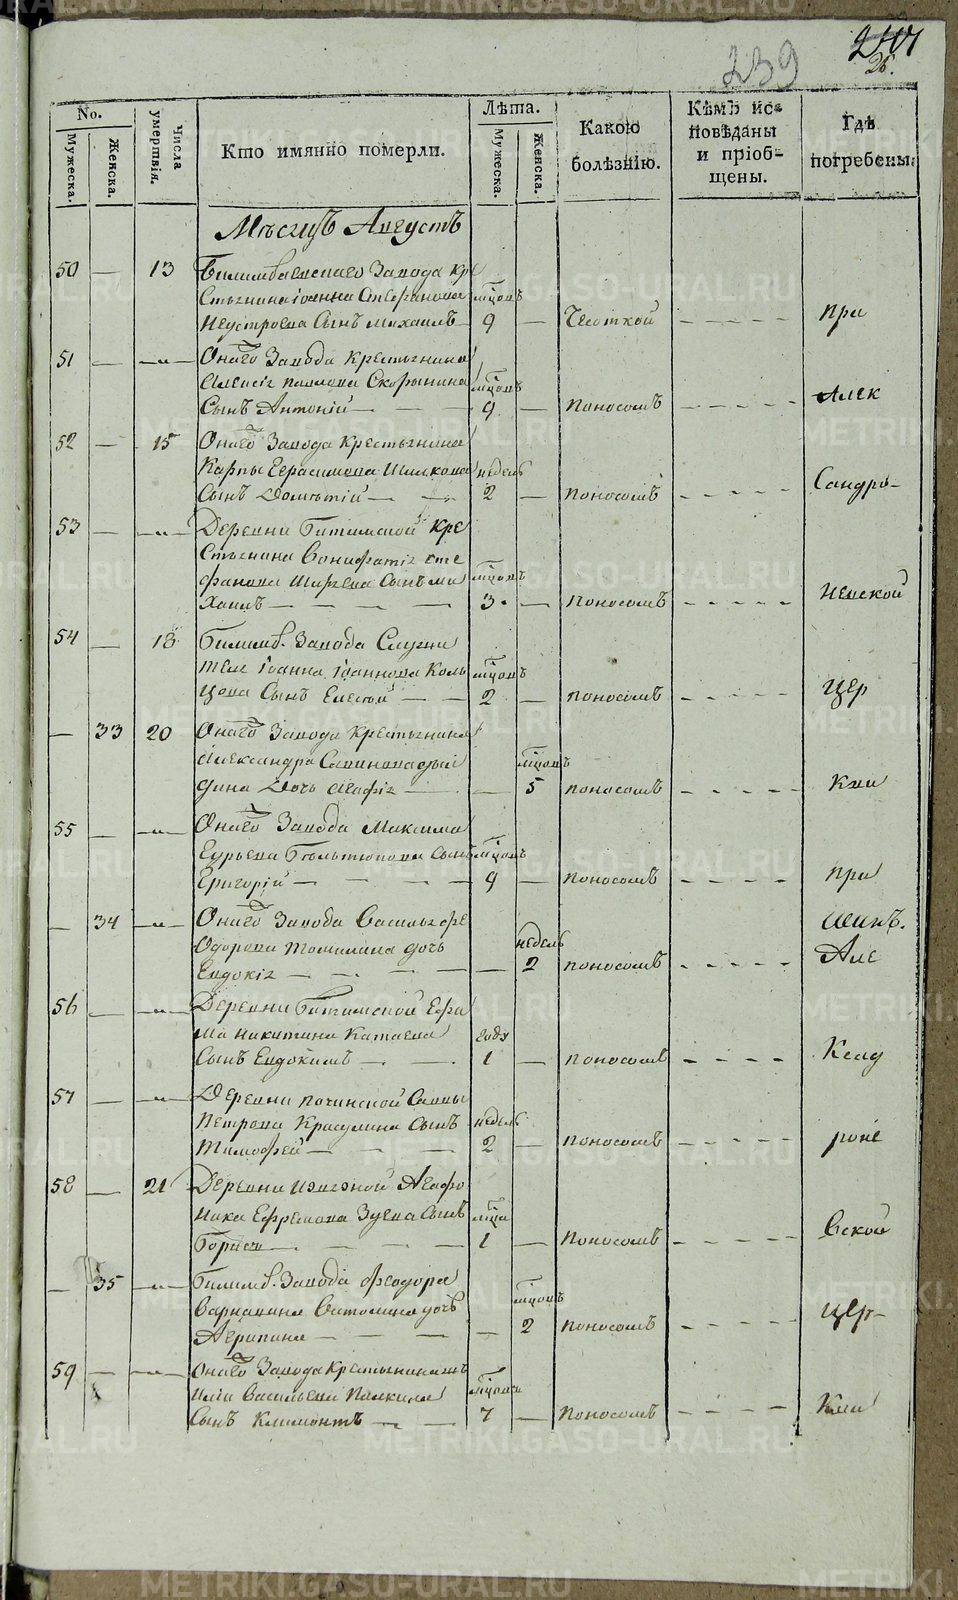 239
26.
No.
Мужеска.
Женска.
Числа умертвія.
Кто имянно померли.
Лѣта.
Мужеска.
Женска.
Какою болѣзнію.
Кѣмъ исповѣданы и пріобщены.
Гдѣ погребены.
Мѣсяцъ Августъ
50 — 13 Билимбаевскаго Завода Кре
стьянина Іоанна Стефанова мѣсяцъ
Неустроева Сынъ Михаилъ — 9 — Чесоткой - - - - При
51 — —„— Онаго Завода Крестьянина
Алексія Павлова Скорынина
Сынъ Антоній — — — 9 — поносомъ - - - - Алек
52 — 15 Онаго Завода Крестьянина
Карпы Герасимова недель
Сынъ Дометій — — 2 — поносомъ - - - - Сандро-
53 — —„— Деревни Битимской Кре
стьянина Вонифатія Сте
фанова Сынъ Ми
хаилъ — — — — 3. — поносомъ - - - - Невской
54 — 18 Билимб. Завода Служи
теля Іоанна Іоаннова Коль
цова Сынъ — — 2 — поносомъ - - - - Цер
— 33 20 Онаго Завода Крестьянина
Александра
дина Дочь Агафія — — 5 поносомъ - - - - Кви
55 — —„— Онаго Завода Максима
Гурьева Сынъ
Григорій — — — — 9 — поносомъ - - - - При
— 34 —„— Онаго Завода Василья Фе
одорова Томилина дочь недель
Евдокія — — — — — 2 поносомъ - - - - Але
56 — —„— Деревни Битимской Ефи
ма Никитина Катаева года
Сынъ Евдокимъ — - . 1 — поносомъ - - - - Клад
57 — —„— Деревни Починской Саввы
Петрова Красулина Сынъ недель
Тимофей — — — — 2 — поносомъ - - - -
58 — 21 Деревни Агафо
ника Ефремова Зуева Сынъ мѣсяца
Борисъ — — — — 1 — поносомъ - - - - вской
— 35 —„— Билимб. Завода Феодора
дочь
Агрипина — — — — — 2 поносомъ - - - - Цер-
59 — —„— Онаго Завода Крестьянина
Иліи Васильева Палкина
Сынъ Климонтъ — — 7 — поносомъ - - - - Кви
METRIKI.GASO-URAL.RU